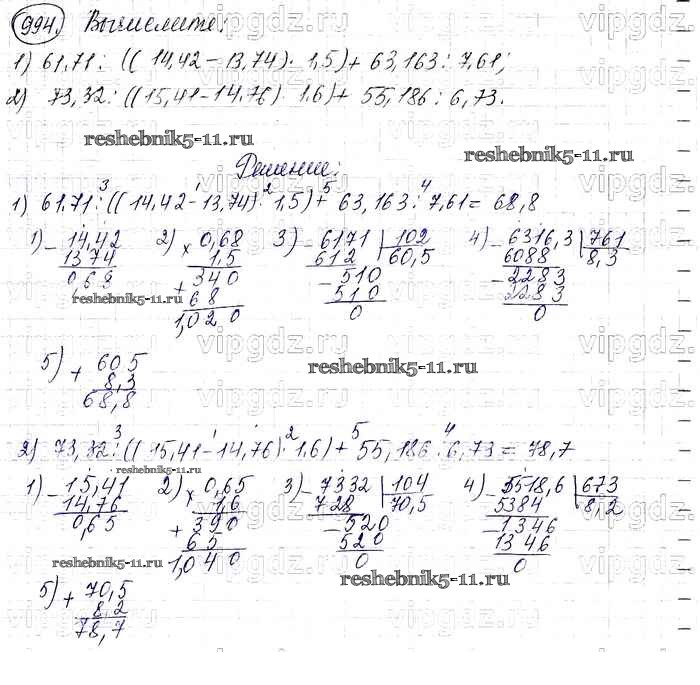 994. Вычислите:
1) 61,71 : ((14,42 - 13,74) · 1,5) + 63,163 : 7,61;
2) 73,32 : ((15,41 - 14,76) · 1,6) + 55,186 : 6,73.
reshebnik5-11.ru
reshebnik5-11.ru
Решение:
3 1 2 5 4
1) 61,71 : ((14,42 - 13,74) · 1,5) + 63,163 : 7,61 = 68,8
1) - 14,42 2) × 0,68 3) - 6171 | 102 4) - 6316,3 | 761
1374 1,5 612 60,5 6088 8,3
0,68 + 340 - 510 - 2283
reshebnik5-11.ru 68 510 2283
1,020 0 0
5) + 605
8,3
68,8
reshebnik5-11.ru
3 1 2 5 4
2) 73,32 : ((15,41 - 14,76) · 1,6) + 55,186 : 6,73 = 78,7
reshebnik5-11.ru
1) - 15,41 2) × 0,65 3) - 7332 | 104 4) - 5518,6 | 673
14,76 1,6 728 70,5 5384 8,2
0,65 + 390 - 520 - 1346
65 520 1346
reshebnik5-11.ru 1,040 0 0
5) + 70,5
8,2
78,7
reshebnik5-11.ru
vipgdz.ru